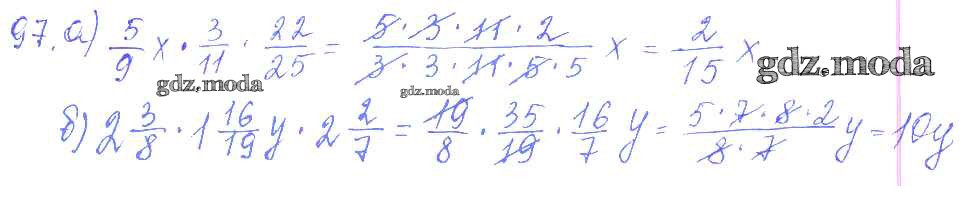 97. а) 5/9 x · 3/11 · 22/25 = 5·3·11·2 / 3·3·11·5·5 x = 2/15 x
gdz.moda
gdz.moda
gdz.moda
б) 2 3/8 · 1 16/19 y · 2 2/7 = 19/8 · 35/19 · 16/7 y = 5·7·8·2 / 8·7 y = 10y